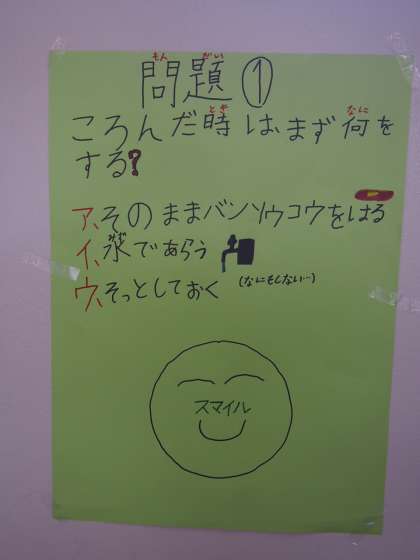 もん だい
問題①
とき なに
ころんだ時は、まず何を
する?
ア、そのままバンソウコウをはる
みず
イ、水であらう
ウ、そっとしておく (なにもしない…)
スマイル